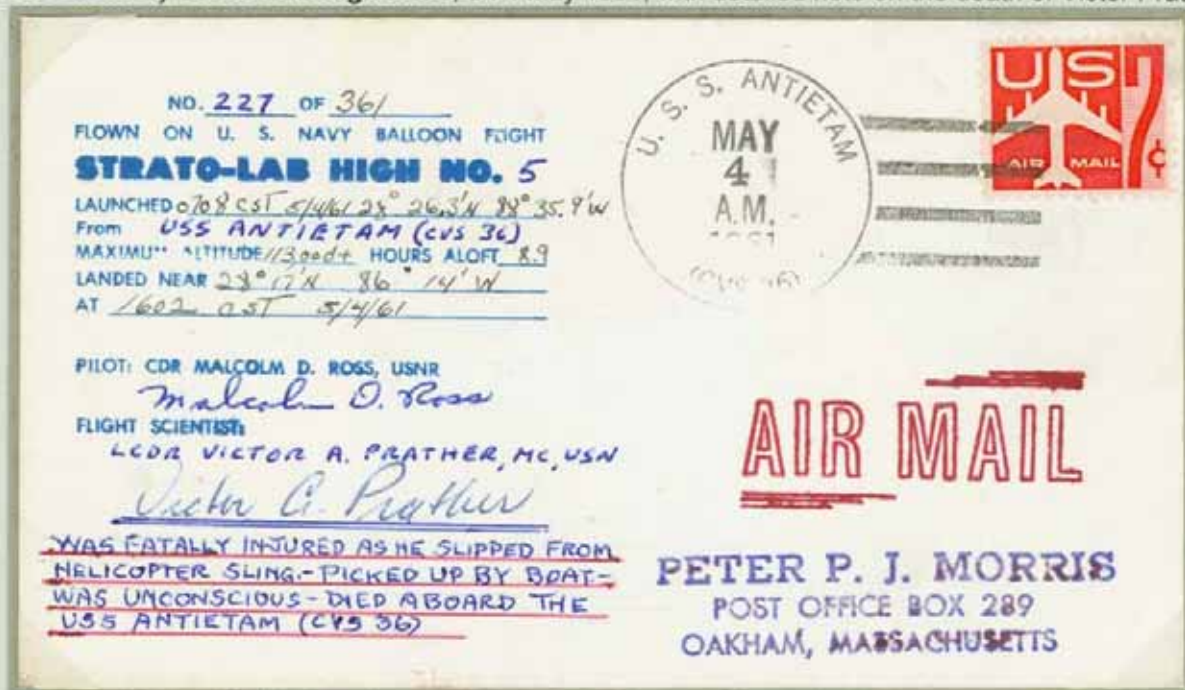 NO. 227 OF 361
FLOWN ON U. S. NAVY BALLOON FLIGHT
STRATO-LAB HIGH NO. 5
LAUNCHED 0708 CST 5/4/61 28° 26.3'N 88° 35.9'W
From USS ANTIETAM (CVS 36)
MAXIMUM ALTITUDE 113,000+ HOURS ALOFT 8.9
LANDED NEAR 28° 17'N 86° 14' W
AT 1602 CST 5/4/61
PILOT: CDR MALCOLM D. ROSS, USNR
Malcolm D. Ross
FLIGHT SCIENTIST:
LCDR VICTOR A. PRATHER, MC, USN
Victor A. Prather
WAS FATALLY INJURED AS HE SLIPPED FROM
HELICOPTER SLING.-PICKED UP BY BOAT-
WAS UNCONSCIOUS-DIED ABOARD THE
USS ANTIETAM (CVS 36)
U. S. S. ANTIETAM
MAY
4
A.M.
1961
(CVS 36)
US 7¢
AIR MAIL
AIR MAIL
PETER P. J. MORRIS
POST OFFICE BOX 289
OAKHAM, MASSACHUSETTS